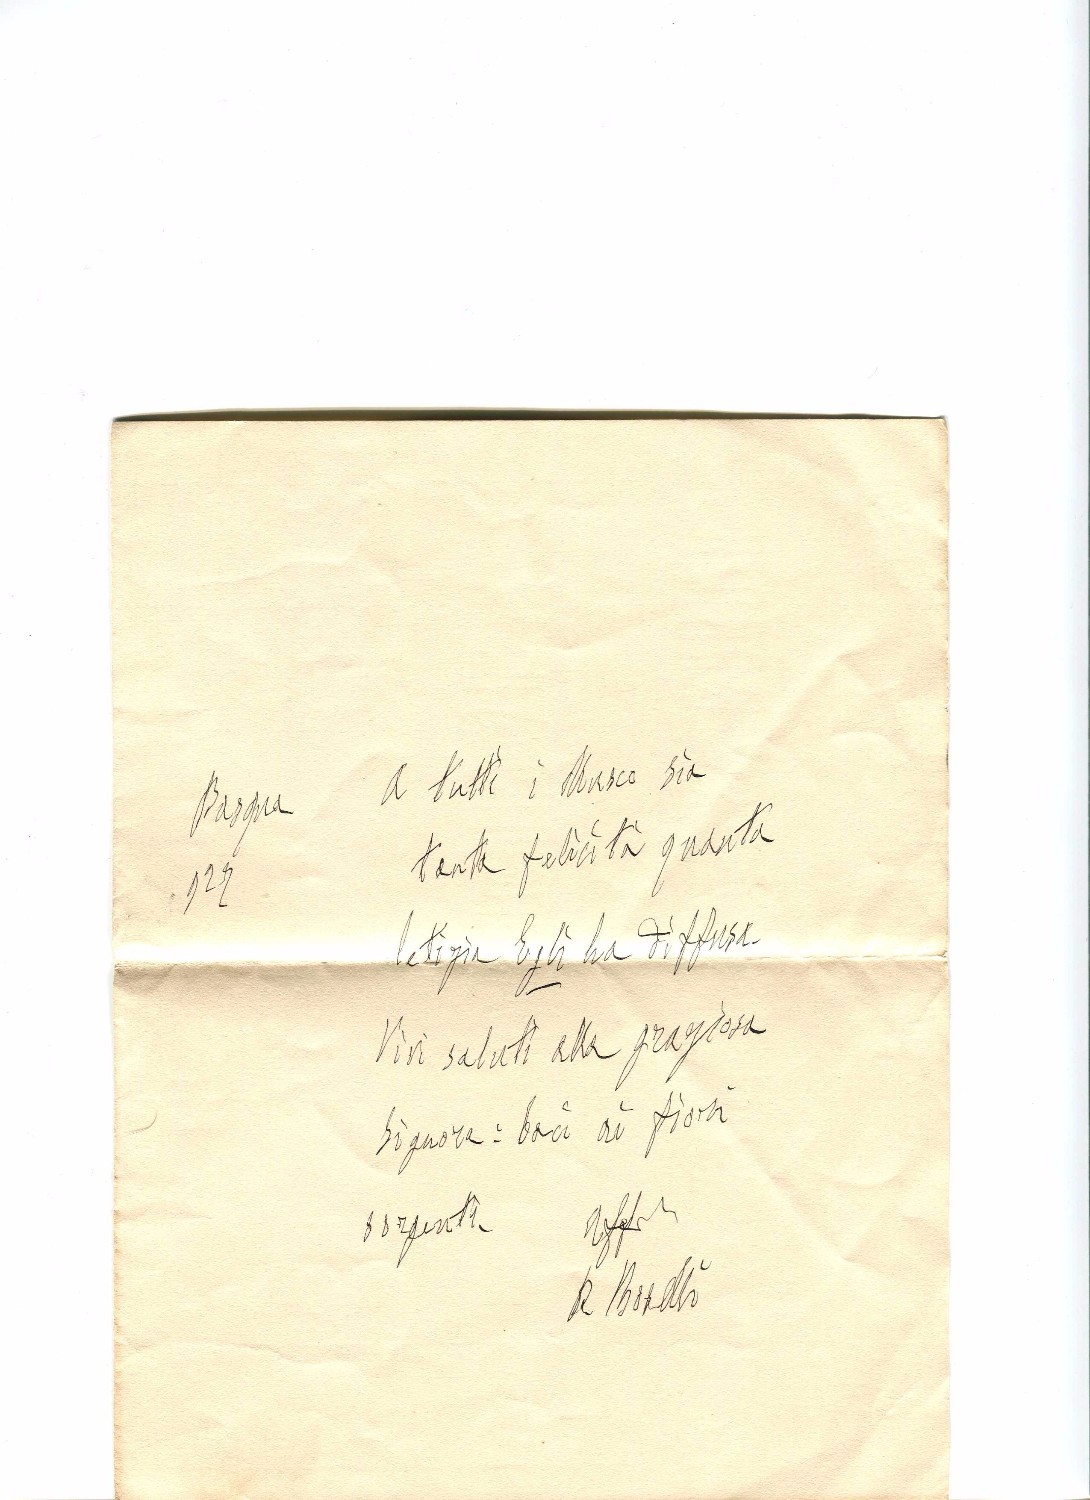 Pasqua
927
A tutti i Musco sia
tanta felicità quanta
letizia Egli ha diffusa.
Vivi saluti alla graziosa
Signora: baci ai fiori
sorgenti.
R